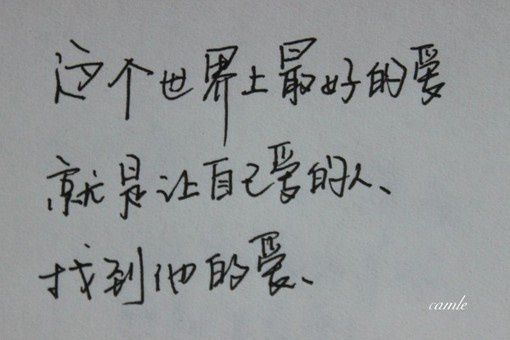 这个世界上最好的爱
就是让自己爱的人、
找到他的爱、
camle